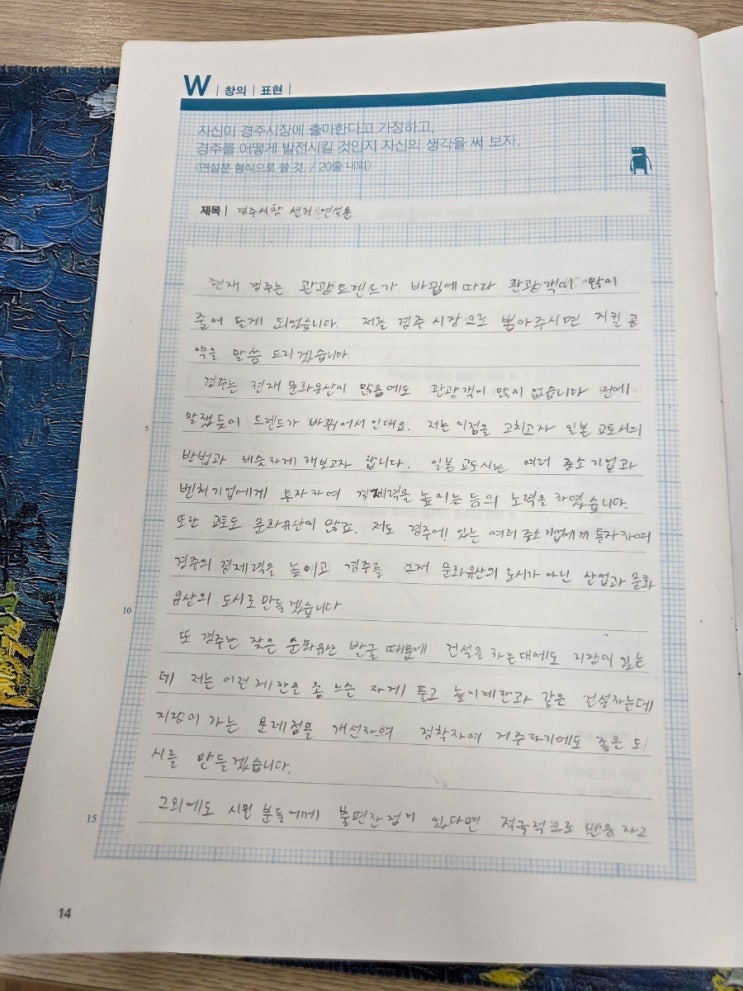 W | 창의 | 표현 |
자신이 경주시장에 출마한다고 가정하고,
경주를 어떻게 발전시킬 것인지 자신의 생각을 써 보자.
(연설문 형식으로 쓸 것. / 20줄 내외)
제목 | 경주시장 선거 연설문
현재 경주는 관광트렌드가 바뀜에 따라 관광객이 많이
줄어 들게 되었습니다. 저를 경주 시장으로 뽑아주시면 지킬 공
약을 말씀 드리겠습니다.
경주는 현재 문화유산이 많음에도 관광객이 많이 없습니다 전에
말했듯이 트렌드가 바뀌어서 인데요. 저는 이점을 고치고자 일본 교토시의
5
방법과 비슷하게 해보고자 합니다. 일본 교토시는 여러 중소기업과
벤처기업에게 투자하여 경제력을 높이는 등의 노력을 하였습니다.
또한 교토도 문화유산이 많죠. 저도 경주에 있는 여러 중소기업에게 투자하여
경주의 경제력을 높이고 경주를 그저 문화유산의 도시가 아닌 산업과 문화
유산의 도시로 만들겠습니다.
10
또 경주는 잦은 문화유산 발굴 때문에 건설을 하는데에도 지장이 있는
데 저는 이런 제한은 좀 느슨 하게 풀고 높이제한과 같은 건설하는데
지장이 가는 문제점을 개선하여 정착하여 거주하기에도 좋은 도
시를 만들겠습니다.
그외에도 시민 분들에게 불편한점이 있다면 적극적으로 반응 하고
15
14